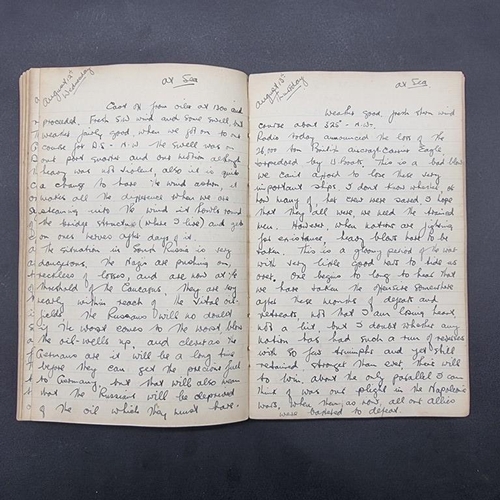 August 12th
Wednesday
At Sea
Cast off from oiler at 1200 and
proceeded. Fresh S.W wind and some swell, but
weather fairly good, when we got on to our
course for D.S - N.W. the swell was on
our port quarter and our motion although
heavy was not violent, also it is quite
a change to have the wind astern, it
makes all the difference when we are
steaming into the wind it howls round
the bridge structure (where I live) and gets
on ones nerves after days of it.
The situation in South Russia is very
dangerous. The Nazis are pushing on
reckless of losses, and are now at the
threshold of the Caucasus. They are very
nearly within reach of the vital oil-
fields. The Russians will no doubt
if the worst comes to the worst blow
the oil-wells up, and clever as the
Germans are it will be a long time
before they can get the precious fuel
to Germany, but that will also mean
that the Russians will be deprived
of the oil which they must have.
August 13th
Thursday
At Sea
Weather good, fresh stern wind
course about 325° - N.W.
Radio today announced the loss of the
26,000 ton British aircraft carrier Eagle
torpedoed by U Boats. This is a bad blow
we can't afford to lose these very
important ships. I dont know whether, or
how many of her crew were saved. I hope
that they all were, we need the trained
men. However, when nations are fighting
for existence, heavy blows have to be
taken. This is a gloomy period of the war
with very little good news to tide us
over. One begins to long to hear that
we have taken the offensive somewhere
after these months of defeats and
retreats, not that I am losing heart,
not a bit, but I doubt whether any
nation has had such a run of reverses
with so few triumphs and yet still
retained stronger than ever their will
to win. About the only parallel I can
think of was our plight in the Napoleonic
wars, when then, as now, all our allies
were battered to defeat.